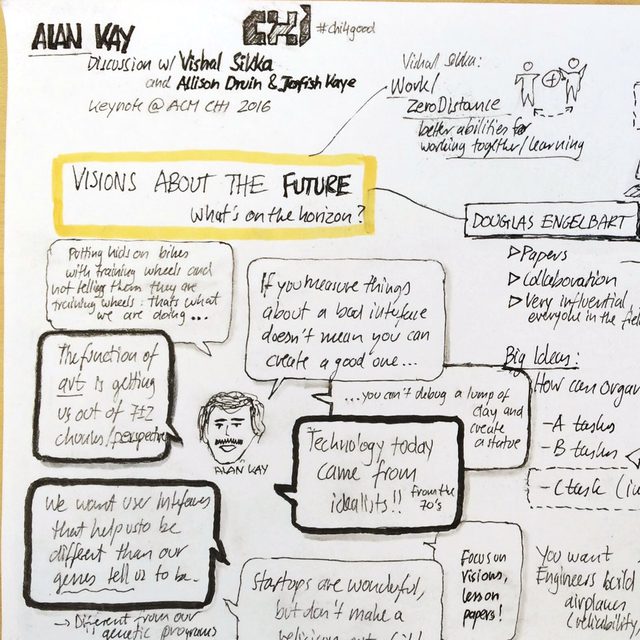 ALAN KAY
CHI
#chi4good
Discussion w/ Vishal Sikka
and Allison Druin & Jofish Kaye
Keynote @ ACM CHI 2016
Vishal Sikka:
Work/
ZeroDistance
better abilities for
working together/learning
VISIONS ABOUT THE FUTURE
What's on the horizon?
DOUGLAS ENGELBART
Papers
Collaboration
Very influential
everyone in the fiel
Big Ideas:
How can organ
-A tasks
-B tasks
-C task
Putting kids on bikes
with training wheels and
not telling them they are
training wheels: thats what
we are doing...
If you measure things
about a bad interface
doesn't mean you can
create a good one...
The function of
art is getting
us out of
chunks/perspective
...you can't debug a lump of
clay and
create
a statue
ALAN KAY
Technology today
came from
idealists!! from the
70's
We want user intefaces
that help us to be
different than our
genes tell us to be.
→ Different from our
genetic programs
Startups are wonderful,
but don't make a
Focus on
visions,
less on
papers!
You want
Engineers build
airplanes
(reliability